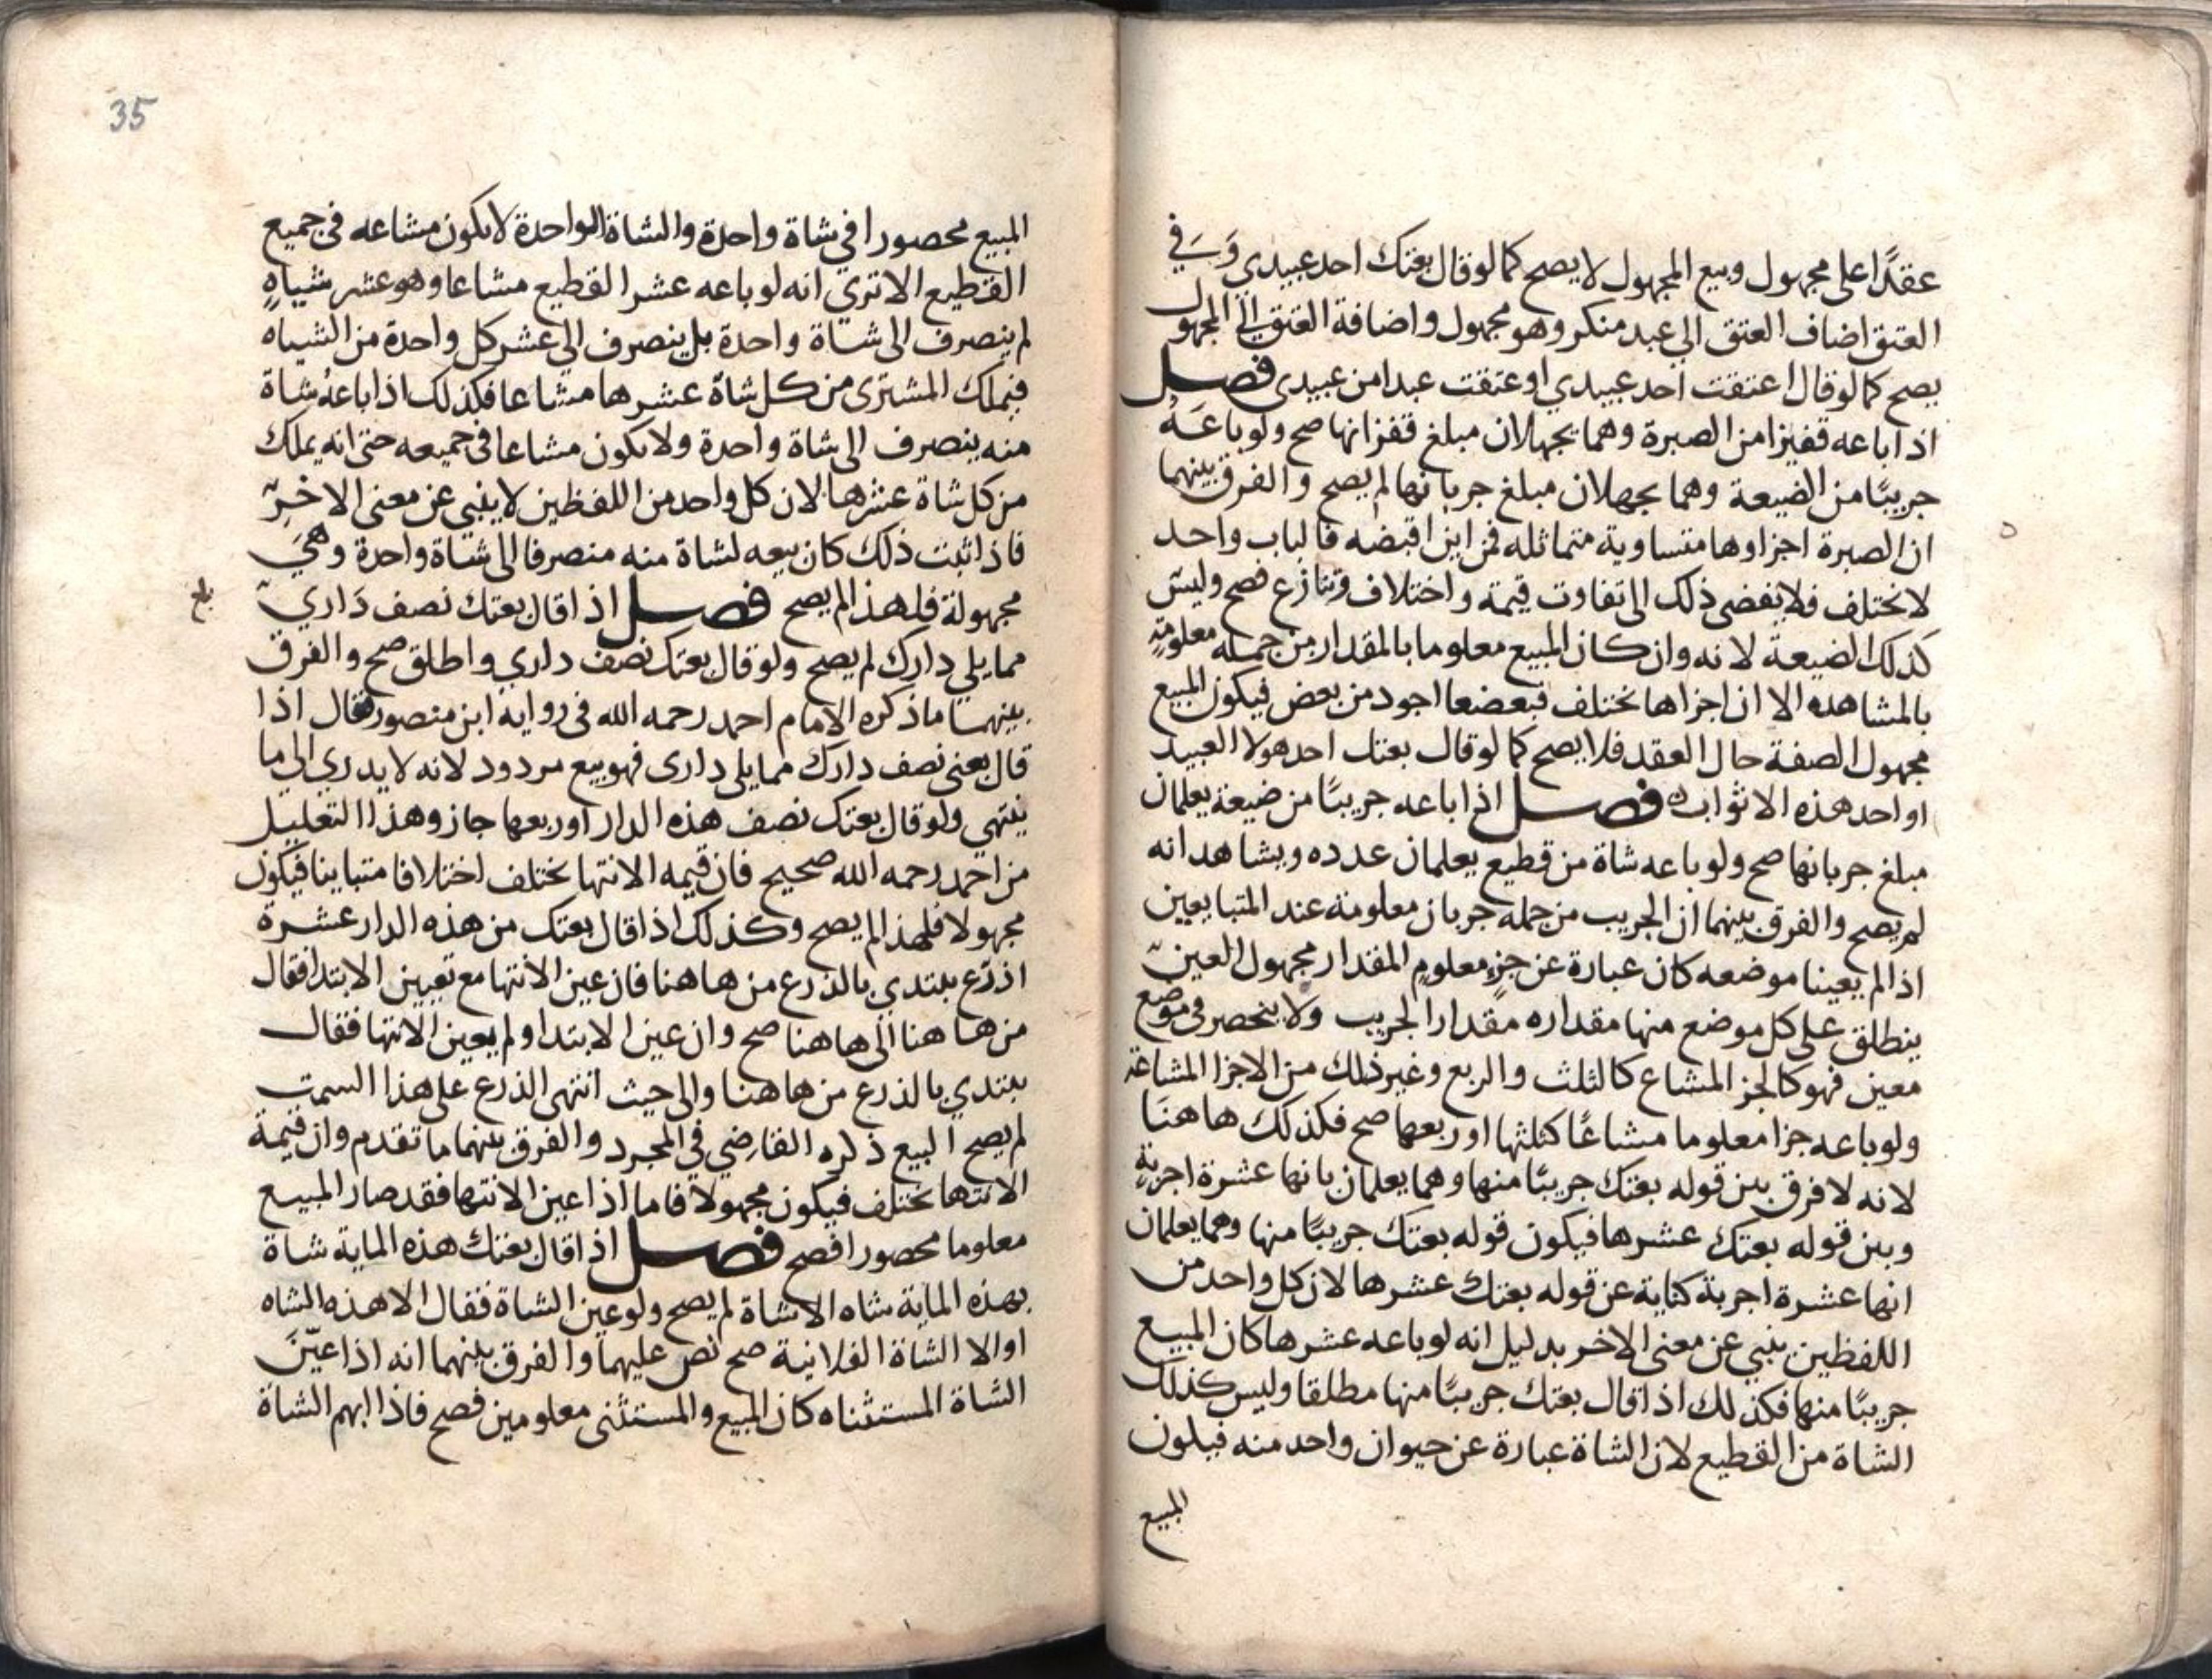 عقدًا على مجهول وبيع المجهول لا يصح كما لو قال بعتك احد عبيدي وَسَي في
العتق اضاف العتق الى عبد منكر وهو مجهول واضافة العتق الى المجهول
يصح كما لو قال اعتقت احد عبيدي او عتقت عبدا من عبيدى فصل
اذا باعه قفيزا من الصبرة وهما يجهلان مبلغ قفزانها صح ولو باعَهُ
جريبًا من الضيعة وهما يجهلان مبلغ جربانها لم يصح والفرق بينهما
ان الصبرة اجزاوها متساوية متماثله فمن اين اقبضه فالباب واحد
لا تختلف فلا يفضى ذلك الى تفاوت قيمة واختلاف وتنازع فصح وليس
كذلك الضيعة لانه وان كان المبيع معلوما بالمقدار من جملة معلومةٍ
بالمشاهده الا ان اجزاها تختلف فبعضعا اجود من بعض فيكون المبيع
مجهول الصفة حال العقد فلا يصح كما لو قال بعتك احد هولا العبيد
او احد هذه الاثواب ه فصل اذا باعه جريبًا من ضيعة يعلمان
مبلغ جربانها صح ولو باعه شاة من قطيع يعلمان عدده ويشاهدانه
لم يصح والفرق بينهما ان الجريب من جملة جربان معلومة عند المتبايعين
اذا لم يعينا موضعه كان عبارة عن جزءٍ معلومٍ المقدار مجهول العين
ينطلق على كل موضع منها مقداره مقدار الجريب ولا ينحصر فى موضع
معين فهو كالجز المشاع كالثلث والربع وغير ذلك من الاجزا المشاعة
ولو باعه جزا معلوما مشاعًا كثلثها او ربعها صح فكذلك هاهنَا
لانه لا فرق بين قوله بعتك جريبًا منها وهما يعلمان بانها عشرة اجربةٍ
وبين قوله بعتك عشرها فيكون قوله بعتك جريبًا منها وهما يعلمان
انها عشرة اجربة كناية عن قوله بعتك عشرها لان كل واحد من
اللفظين ينبي عن معنى الاخر بدليل انه لو باعه عشرها كان المبيع
جريبًا منها فكذلك اذا قال بعتك جريبًا منها مطلقا وليس كذلك
الشاة من القطيع لان الشاة عبارة عن حيوان واحد منه فيكون
المبيع
35
المبيع محصورا في شاة واحدة والشاة الواحدة لا يكون مشاعه فى جميع
القطيع الا تري انه لو باعه عشر القطيع مشاعا وهو عشر شياهٍ
لم ينصرف الى شاة واحدة بل ينصرف الى عشر كل واحدة من الشياه
فيملك المشترى من كل شاة عشرها مشاعا فكذلك اذا باعهُ شاة
منه ينصرف الى شاة واحدة ولا يكون مشاعا فى جميعه حتى انه يملك
من كل شاة عشرها لان كل واحد من اللفظين لا ينبي عن معنى الاخر
فاذا ثبت ذلك كان بيعه لشاة منه منصرفا الى شاة واحدة وهىَ
مجهولة فلهذا لم يصح فصل اذا قال بعتك نصف دَاري
بلغ
مما يلي دارك لم يصح ولو قال بعتك نصف داري واطلق صح والفرق
بينهما ما ذكره الامام احمد رحمه الله فى رواية ابن منصور فقال اذا
قال بعنى نصف دارك مما يلى دارى فهو بيع مردود لانه لا يدري الى ما
ينتهي ولو قال بعتك نصف هذه الدار او ربعها جاز وهذا التعليل
من احمد رحمه الله صحيح فان قيمه الانتها تختلف اختلافا متباينا فيكون
مجهولا فلهذا لم يصح وكذلك اذا قال بعتك من هذه الدار عشرة
اذرع يبتدي بالذرع من هاهنا فان عين الانتها مع تعيين الابتدا فقال
من هاهنا الى هاهنا صح وان عين الابتدا ولم يعين الانتها فقال
يبتدي بالذرع من هاهنا والى حيث انتهى الذرع على هذا السمت
لم يصح البيع ذكره القاضِي في المجرد والفرق بينهما ما تقدم وان قيمة
الانتها تختلف فيكون مجهولا فاما اذا عين الانتها فقد صار المبيع
معلوما محصورا فصح فصل اذا قال بعتك هذه الماية شاة
بهذه الماية شاه الا شاة لم يصح ولو عين الشاة فقال الا هذه الشاه
او الا الشاة الفلانية صح نص عليهما والفرق بينهما انه اذا عيّنَ
الشاة المستثناه كان المبيع والمستثنى معلومين فصح فاذا ابهم الشاة